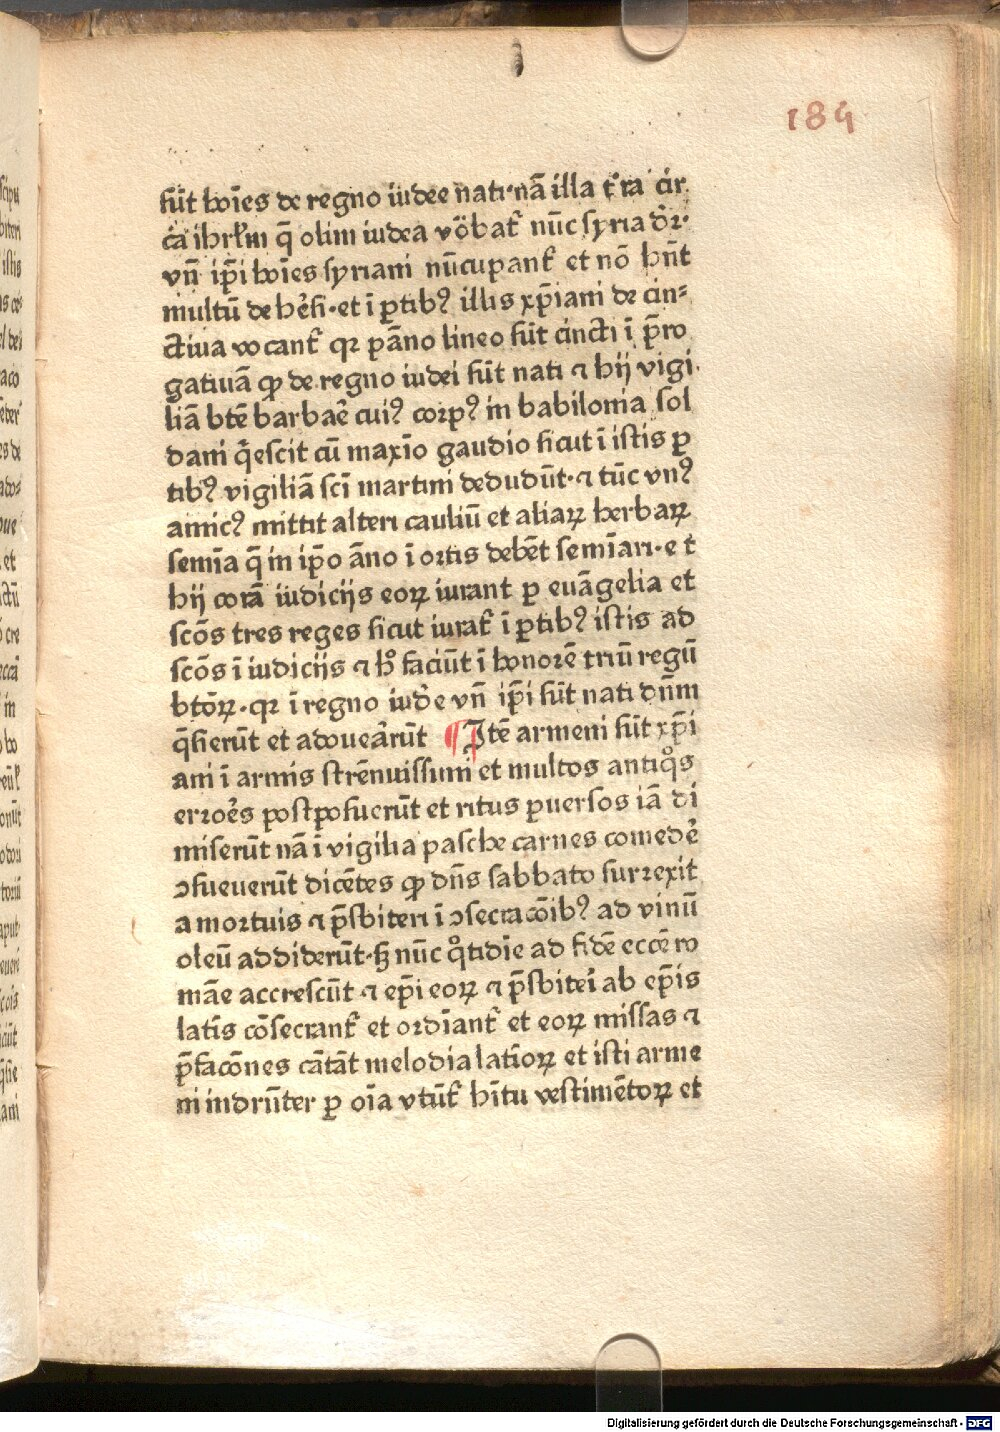 184
sūt hoīes de regno iudee nati·nā illa t̄ra cir
ca ihrłm q̄ olim iudea vo᷒bat᷑ nūc syria dr̄·
vn̄ ip̄i hoīes syriani nūcupant᷑ et nō hn̄t
multū de bn̄fi·et ī ꝑtibꝰ illis xp̄iani de cin⸗
ctiua vocant᷑ qꝛ pāno lineo sūt cincti ī p̄ro
gatiuā ꝙ de regno iudei sūt nati ⁊ hij vigi
liā btē barbaē cuiꝰ corpꝰ in babilonia sol
dani q̄escit cū maxīo gaudio sicut ī istis ꝑ
tibꝰ vigiliā sci martini deducūt·⁊ tūc vnꝰ
amicꝰ mittit alteri cauliū et aliaꝝ herbaꝝ
semīa q̄ in ip̄o āno ī ortis debēt semīari·e t
hij corā iudicijs eoꝝ iurant ꝑ euāgelia et
scōs tres reges sicut iurat᷑ ī ꝑtibꝰ istis ad
scōs ī iudicijs ⁊ hͦ faciūt ī honorē triū regū
btōꝝ·qꝛ ī regno iud̄e vn̄ ip̄i sūt nati dn̄m
q̄sierūt et adoueārūt ¶ Itē armeni sūt xp̄i
ani ī armis strēnuissimi et multos antiqͦs
erꝛoēs postposuerūt et ritus ꝑuersos iā di
miserūt nā ī vigilia pasche carnes comedē
ↄsueuerūt dicētes ꝙ dn̄s sabbato surꝛexit
a mortuis ⁊ p̄sbiteri ī ↄsecracōibꝰ ad vinū
oleū addiderūt·sꝫ nūc qͦtidie ad fidē eccē ro
māe accrescūt ⁊ ep̄i eoꝝ ⁊ p̄sbitei ab ep̄is
latīs cōsecrant᷑ et ordīant᷑ et eoꝝ missas ⁊
p̄facōnes cātāt melodia latīoꝝ et isti arme
ni indrn̄ter ꝑ oīa vtūt᷑ hītu vestimētoꝝ et
Digitalisierung gefördert durch die Deutsche Forschungsgemeinschaft - DFG